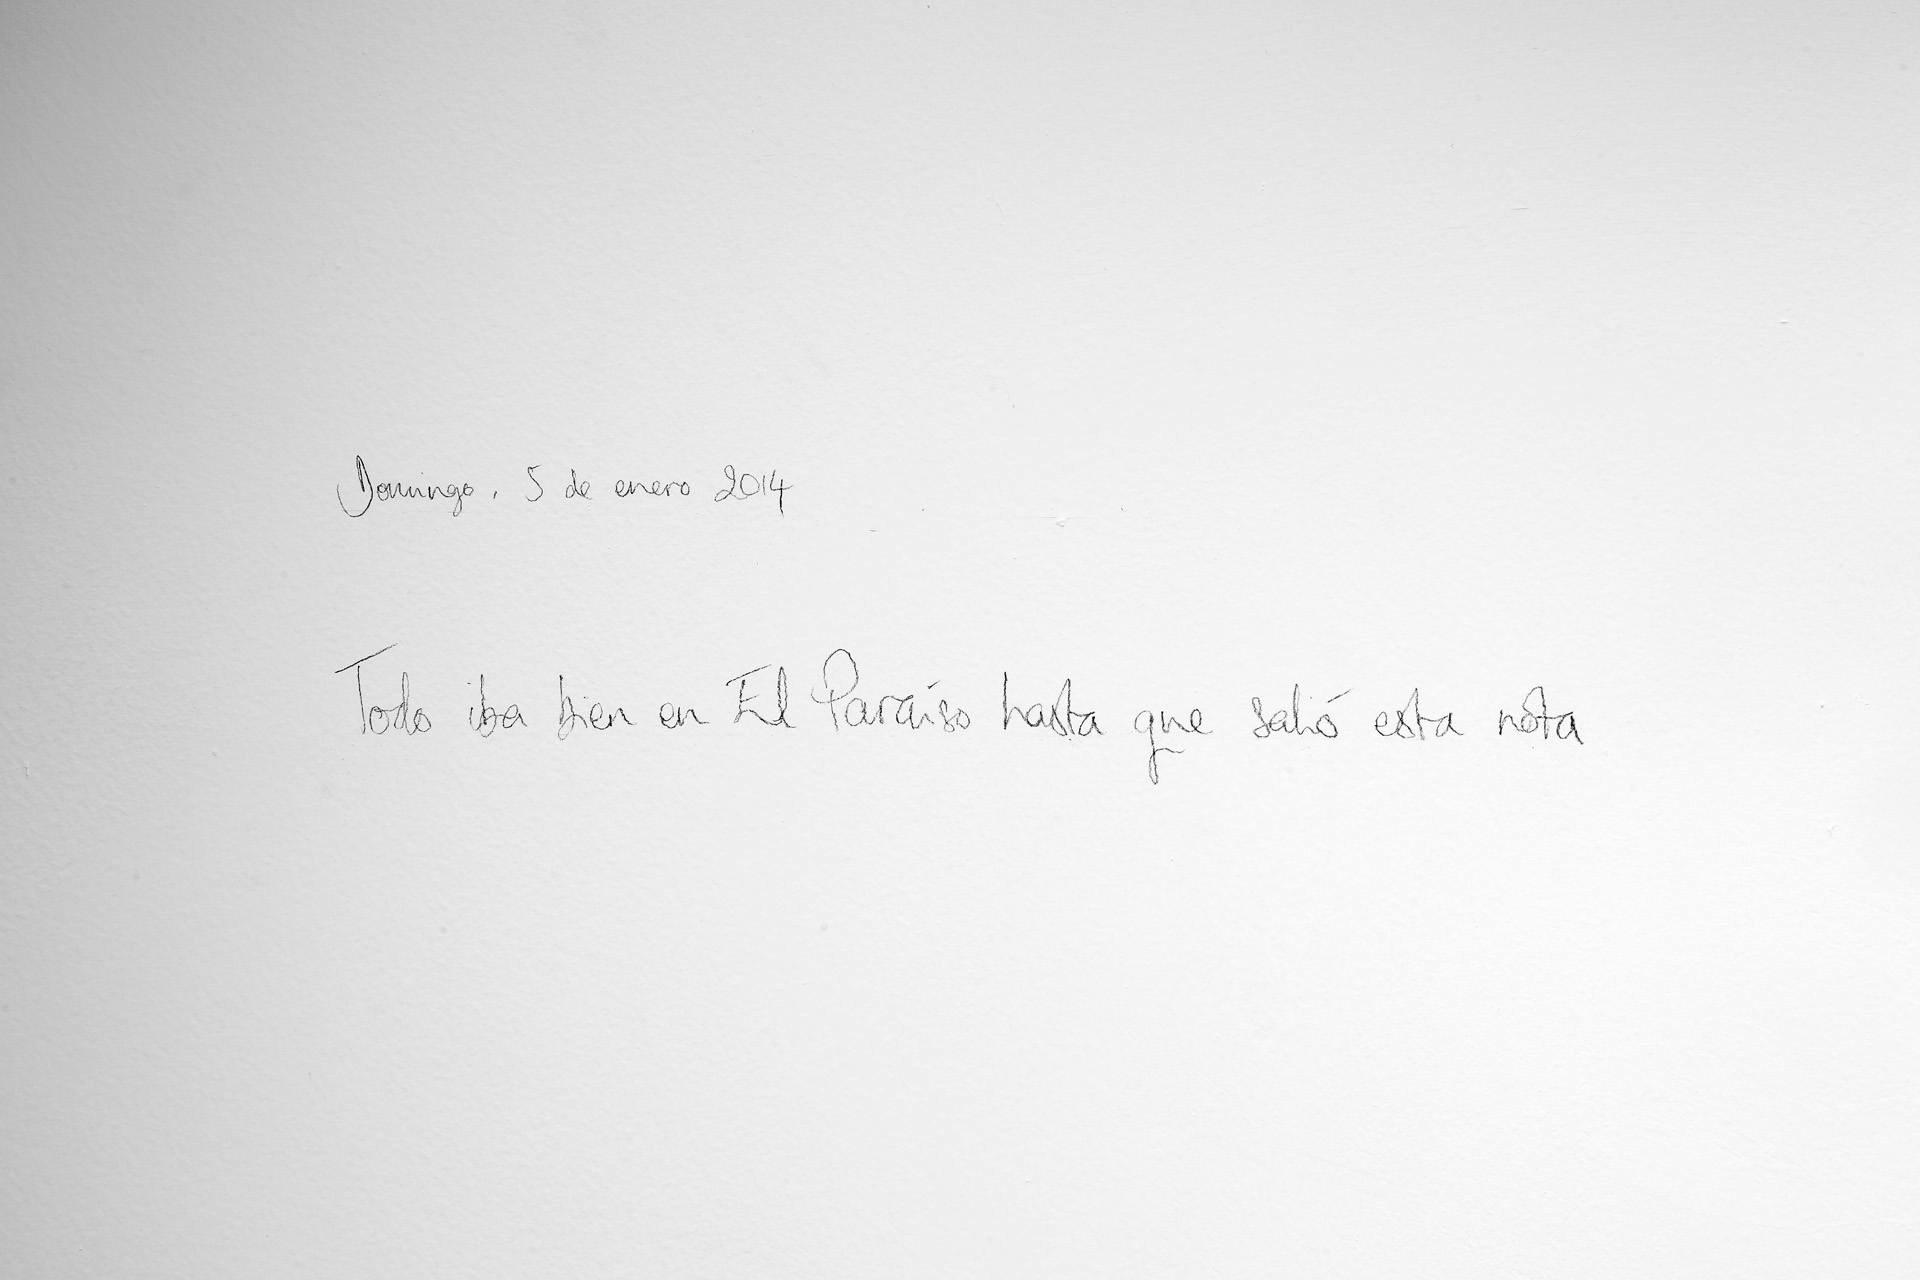 Domingo, 5 de enero 2014
Todo iba bien en El Paraíso hasta que salió esta nota